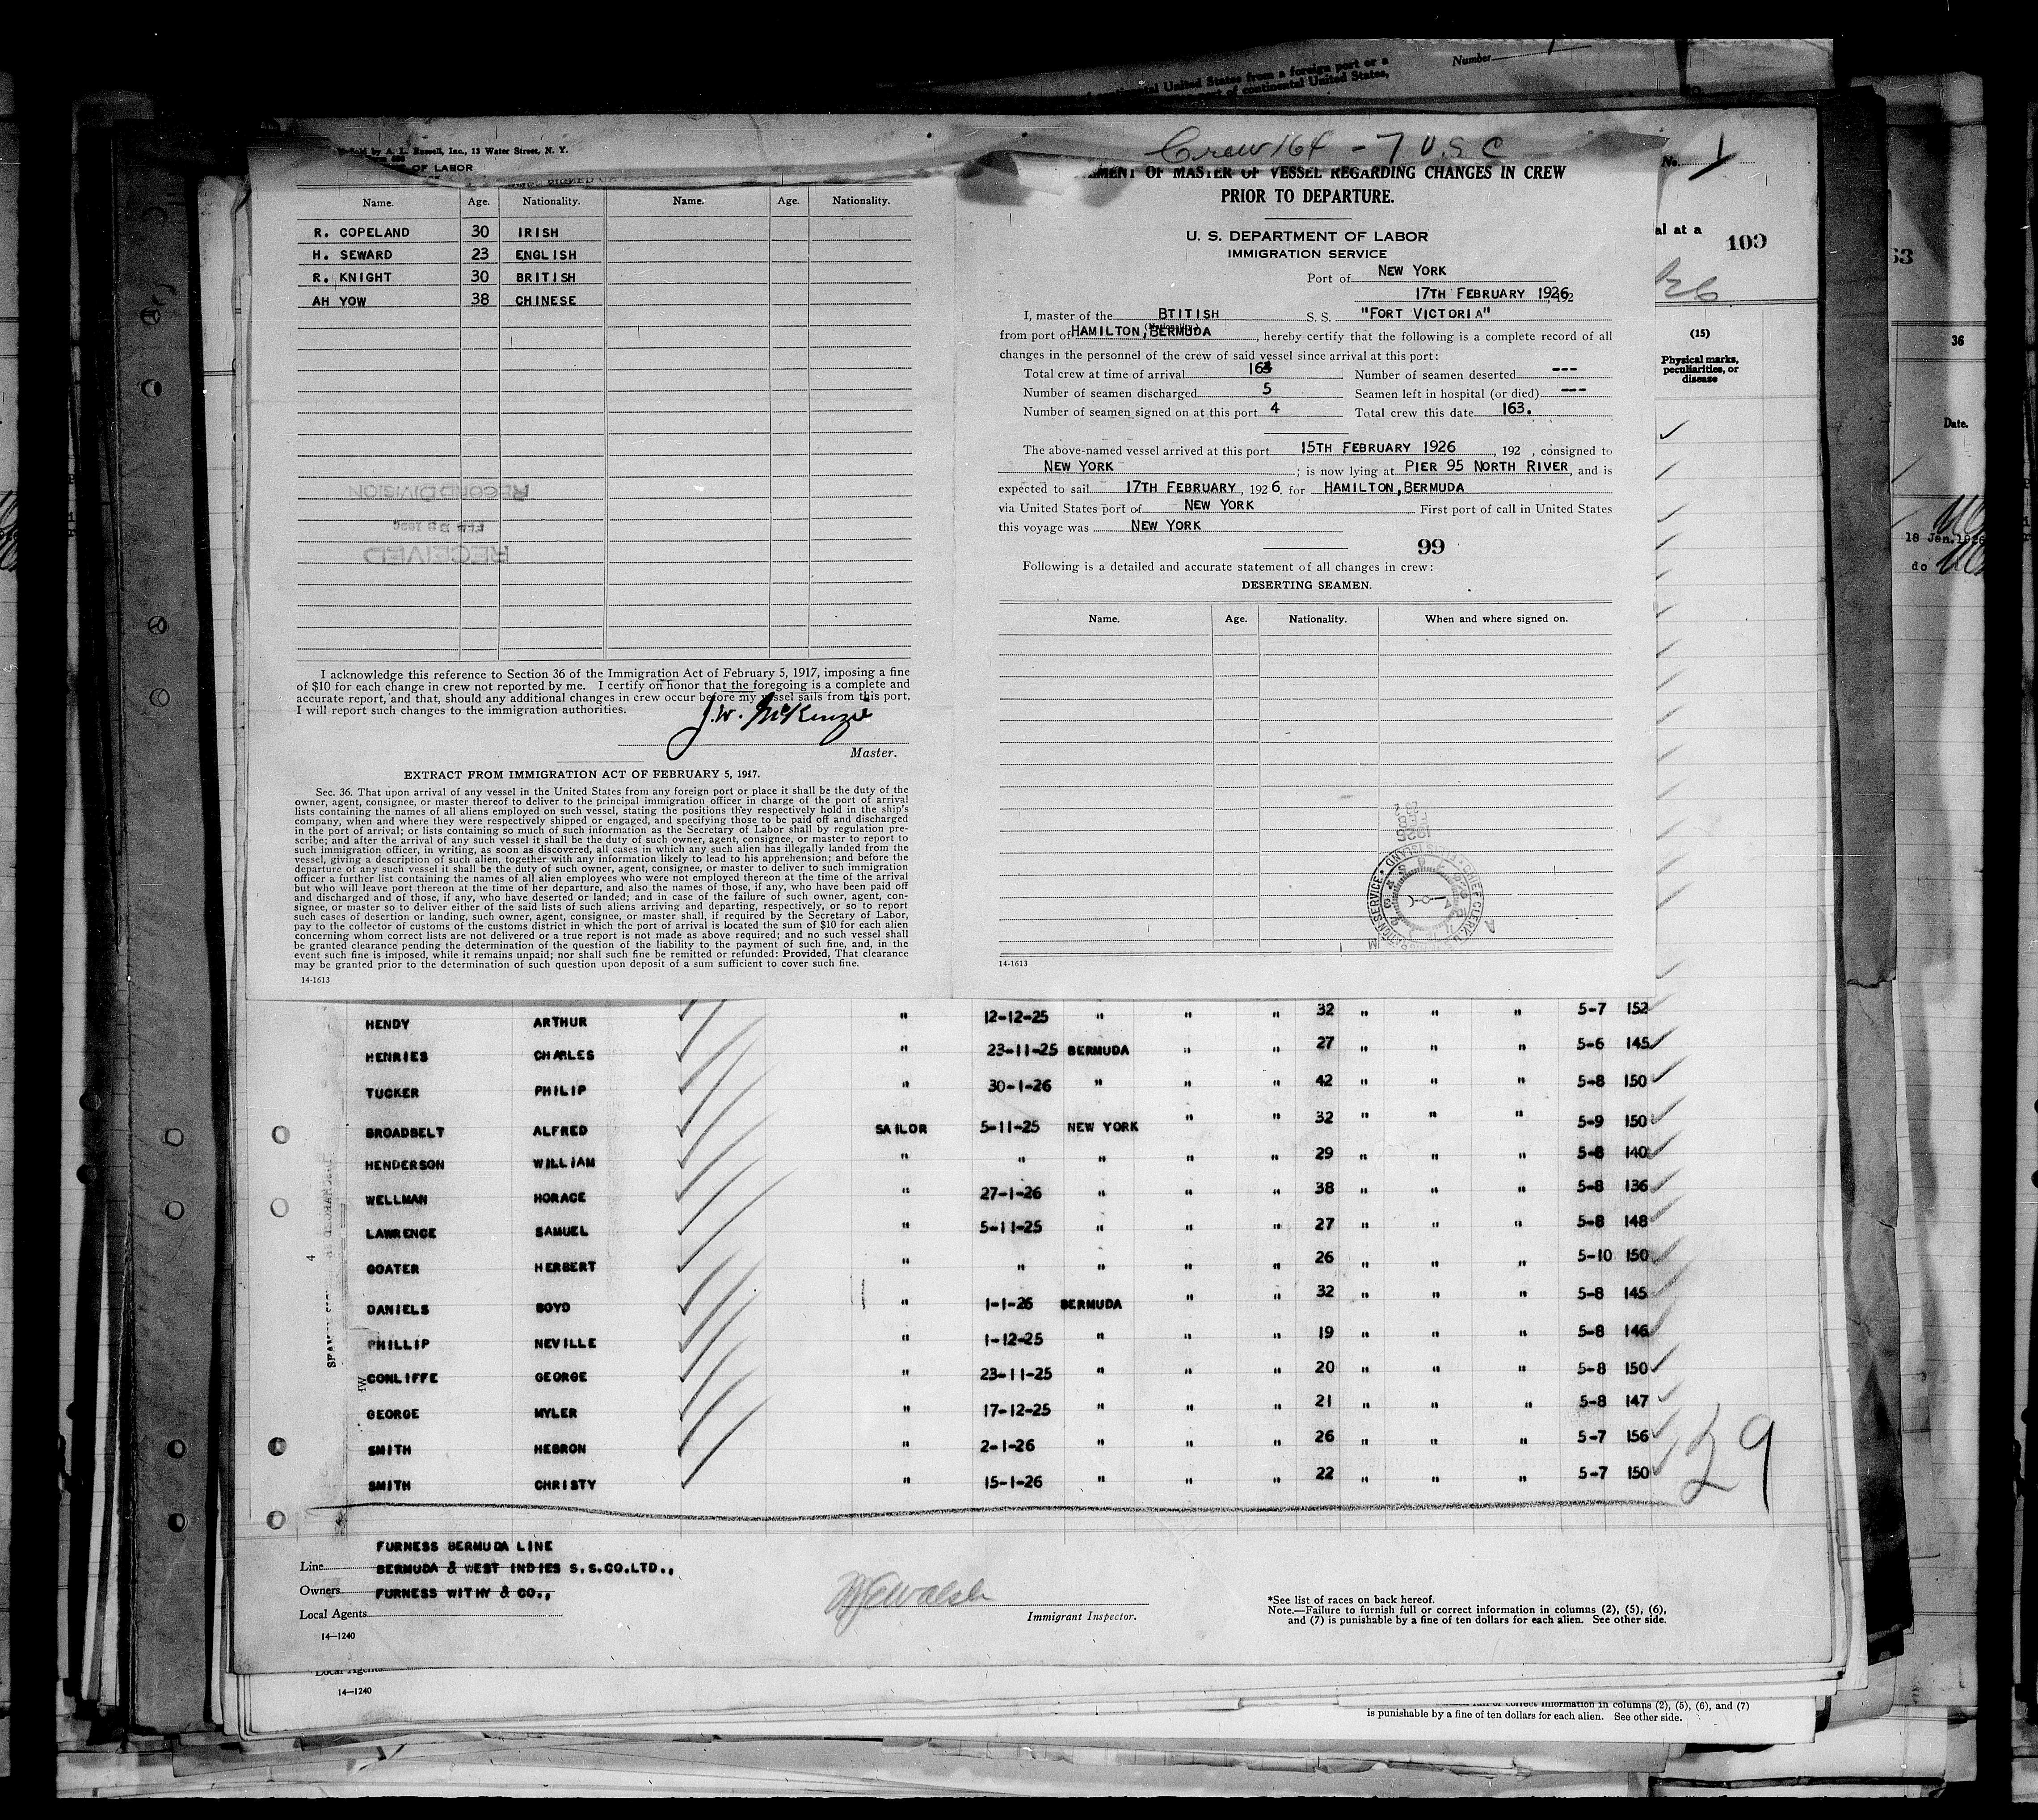 Number
continental United States from a foreign port or a
port of continental United States,
Crew 164 - 7 U S C
No. 1
by A. L. Russell, Inc., 13 Water Street, N. Y.
OF LABOR
Name. Age. Nationality. Name. Age. Nationality.
R. COPELAND 30 IRISH
H. SEWARD 23 ENGLISH
R. KNIGHT 30 BRITISH
AH YOW 38 CHINESE
RECORD DIVISION
RECEIVED
I acknowledge this reference to Section 36 of the Immigration Act of February 5, 1917, imposing a fine
of $10 for each change in crew not reported by me. I certify on honor that the foregoing is a complete and
accurate report, and that, should any additional changes in crew occur before my vessel sails from this port,
I will report such changes to the immigration authorities.
J.W. McKenzie
Master.
EXTRACT FROM IMMIGRATION ACT OF FEBRUARY 5, 1917.
Sec. 36. That upon arrival of any vessel in the United States from any foreign port or place it shall be the duty of the
owner, agent, consignee, or master thereof to deliver to the principal immigration officer in charge of the port of arrival
lists containing the names of all aliens employed on such vessel, stating the positions they respectively hold in the ship's
company, when and where they were respectively shipped or engaged, and specifying those to be paid off and discharged
in the port of arrival; or lists containing so much of such information as the Secretary of Labor shall by regulation pre-
scribe; and after the arrival of any such vessel it shall be the duty of such owner, agent, consignee, or master to report to
such immigration officer, in writing, as soon as discovered, all cases in which any such alien has illegally landed from the
vessel, giving a description of such alien, together with any information likely to lead to his apprehension; and before the
departure of any such vessel it shall be the duty of such owner, agent, consignee, or master to deliver to such immigration
officer a further list containing the names of all alien employees who were not employed thereon at the time of the arrival
but who will leave port thereon at the time of her departure, and also the names of those, if any, who have been paid off
and discharged and of those, if any, who have deserted or landed; and in case of the failure of such owner, agent, con-
signee, or master so to deliver either of the said lists of such aliens arriving and departing, respectively, or so to report
such cases of desertion or landing, such owner, agent, consignee, or master shall, if required by the Secretary of Labor,
pay to the collector of customs of the customs district in which the port of arrival is located the sum of $10 for each alien
concerning whom correct lists are not delivered or a true report is not made as above required; and no such vessel shall
be granted clearance pending the determination of the question of the liability to the payment of such fine, and, in the
event such fine is imposed, while it remains unpaid; nor shall such fine be remitted or refunded: Provided, That clearance
may be granted prior to the determination of such question upon deposit of a sum sufficient to cover such fine.
14-1613
MENT OF MASTER OF VESSEL REGARDING CHANGES IN CREW
PRIOR TO DEPARTURE.
U. S. DEPARTMENT OF LABOR
IMMIGRATION SERVICE
Port of NEW YORK
17TH FEBRUARY 1926, 192
I, master of the BTITISH S. S. "FORT VICTORIA"
(Nationality.)
from port of HAMILTON, BERMUDA, hereby certify that the following is a complete record of all
changes in the personnel of the crew of said vessel since arrival at this port:
Total crew at time of arrival 164 Number of seamen deserted ---
Number of seamen discharged 5 Seamen left in hospital (or died) ---
Number of seamen signed on at this port 4 Total crew this date 163.
The above-named vessel arrived at this port 15TH FEBRUARY 1926, 192 , consigned to
NEW YORK ; is now lying at PIER 95 NORTH RIVER, and is
expected to sail 17TH FEBRUARY, 1926. for HAMILTON, BERMUDA
via United States port of NEW YORK First port of call in United States
this voyage was NEW YORK
99
Following is a detailed and accurate statement of all changes in crew:
DESERTING SEAMEN.
Name. Age. Nationality. When and where signed on.
14-1613
al at a 100
(15)
Physical marks,
peculiarities, or
disease
53
36
Date.
18 Jan. 1926
do
HENDY ARTHUR " 12-12-25 " " " 32 " " " 5-7 152
HENRIES CHARLES " 23-11-25 BERMUDA " " 27 " " " 5-6 145
TUCKER PHILIP " 30-1-26 " " " 42 " " " 5-8 150
BROADBELT ALFRED SAILOR 5-11-25 NEW YORK " " 32 " " " 5-9 150
HENDERSON WILLIAM " " " " " 29 " " " 5-8 140
WELLMAN HORACE " 27-1-26 " " " 38 " " " 5-8 136
LAWRENCE SAMUEL " 5-11-25 " " " 27 " " " 5-8 148
GOATER HERBERT " " " " " 26 " " " 5-10 150
DANIELS BOYD " 1-1-26 BERMUDA " " 32 " " " 5-8 145
PHILLIP NEVILLE " 1-12-25 " " " 19 " " " 5-8 146
CONLIFFE GEORGE " 23-11-25 " " " 20 " " " 5-8 150
GEORGE MYLER " 17-12-25 " " " 21 " " " 5-8 147
SMITH HEBRON " 2-1-26 " " " 26 " " " 5-7 156
SMITH CHRISTY " 15-1-26 " " " 22 " " " 5-7 150
29
FURNESS BERMUDA LINE
Line BERMUDA & WEST INDIES S.S.CO.LTD.,
Owners FURNESS WITHY & CO.,
Local Agents
14—1240
Walsh
Immigrant Inspector.
*See list of races on back hereof.
Note.—Failure to furnish full or correct information in columns (2), (5), (6),
and (7) is punishable by a fine of ten dollars for each alien. See other side.
Local Agents
14—1240
full or correct information in columns (2), (5), (6), and (7)
is punishable by a fine of ten dollars for each alien. See other side.